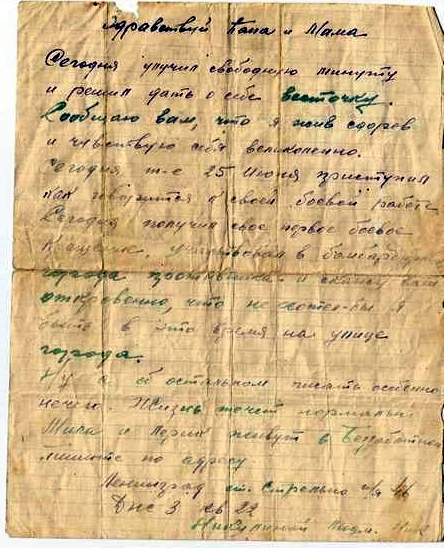 Здравствуй Папа и Мама
Сегодня улучил свободную минуту
и решил дать о себе весточку.
Сообщаю вам, что я жив здоров
и чувствую себя великолепно.
Сегодня т-е 25 Июня приступил
как говорится к своей боевой работе
Сегодня получил свое первое боевое
Крещение, участвовал в бомбардиров
города противника и скажу вам
откровенно, что не хотел-бы я
быть в это время на улице
города.
Ну а об остальном писать особенно
нечего. Жизнь течет нормально
и живут в
пишите по адресу
Ленинград ст. Стрельна п/я
Днс 3 кв 22